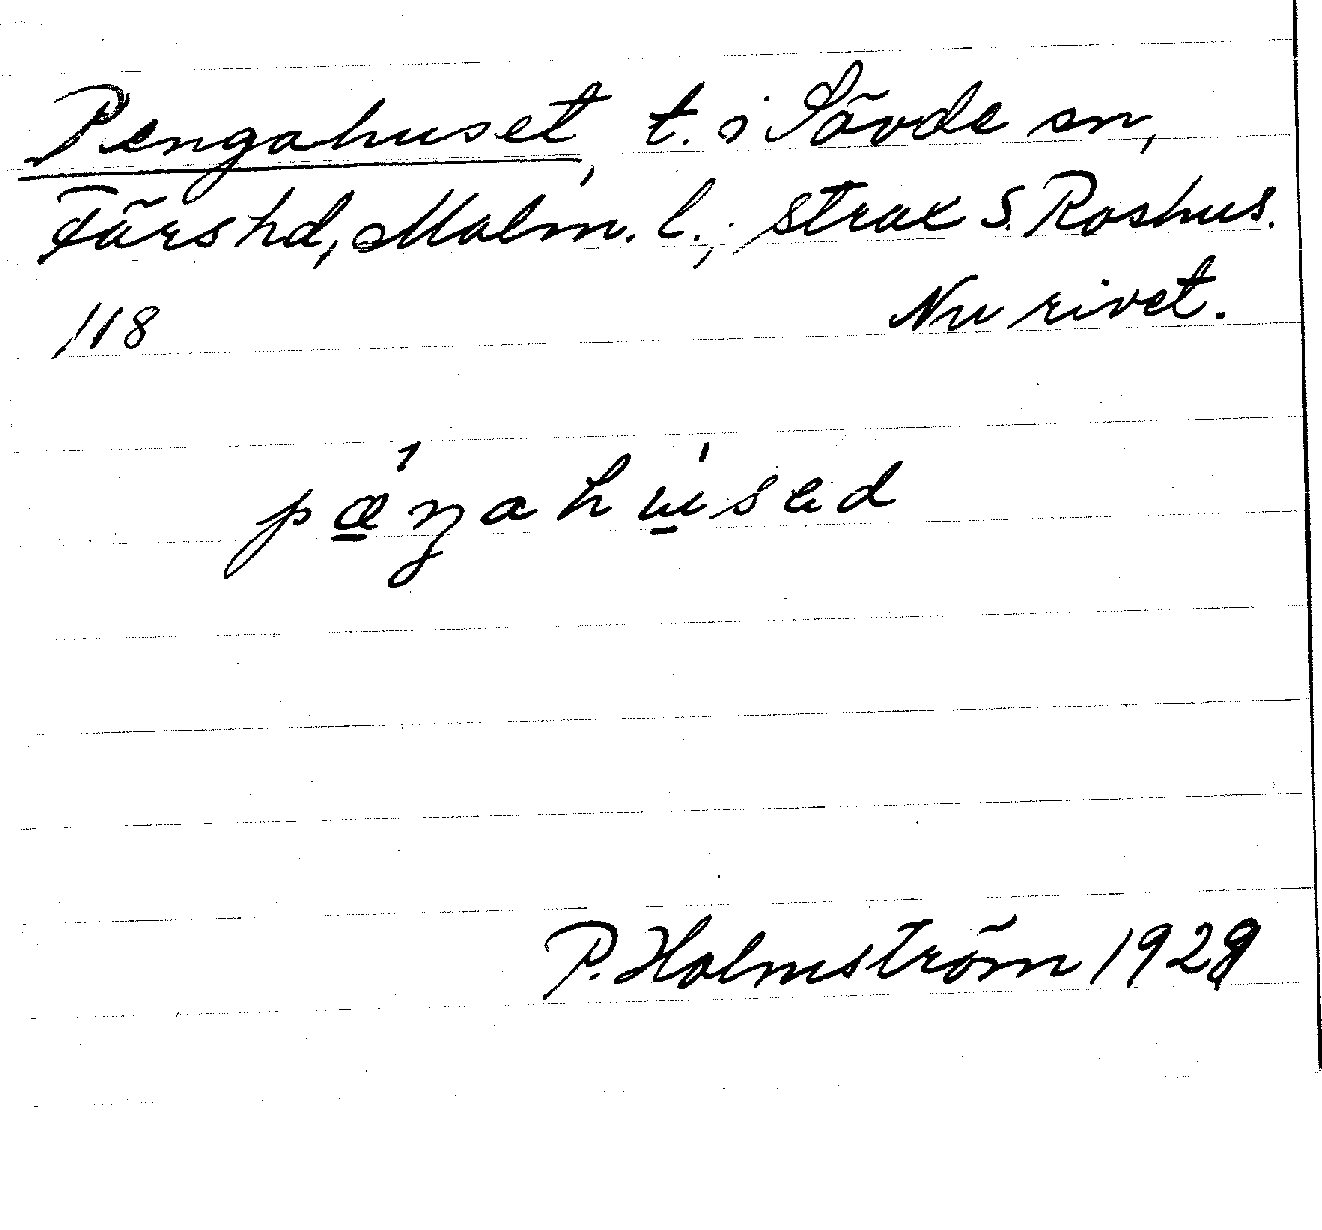 Pengahuset, t. i Sövde sn,
Färs hd, Malm. l.; strax S. Roshus.
118 Nu rivet.
pǽ̱ŋahu̱̍sed
P. Holmström 1929